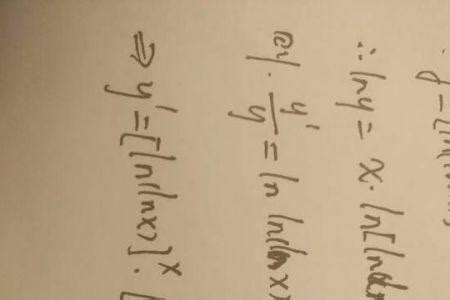 y = [ln(ln
∴ lny = x · ln[ln(ln
y'/y = ln ln(lnx
⇒ y' = [ln(lnx)]^x · [